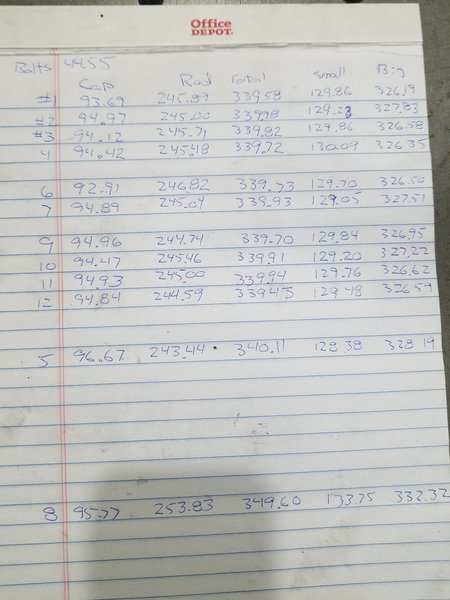 Office
DEPOT.
Bolts 44.55
Cap Rod Total Small Big
#1 93.69 245.89 339.58 129.86 326.19
#2 94.97 245.00 339.98 129.23 327.83
#3 94.12 245.71 339.82 129.86 326.58
4 94.42 245.48 339.72 130.09 326.35
6 92.91 246.82 339.73 129.70 326.50
7 94.89 245.04 339.93 129.05 327.51
9 94.96 244.74 339.70 129.84 326.95
10 94.47 245.46 339.91 129.20 327.22
11 94.93 245.00 339.94 129.76 326.62
12 94.84 244.59 339.43 129.48 326.59
5 96.67 243.44 340.11 128.38 328.19
8 95.77 253.83 349.60 133.75 332.32